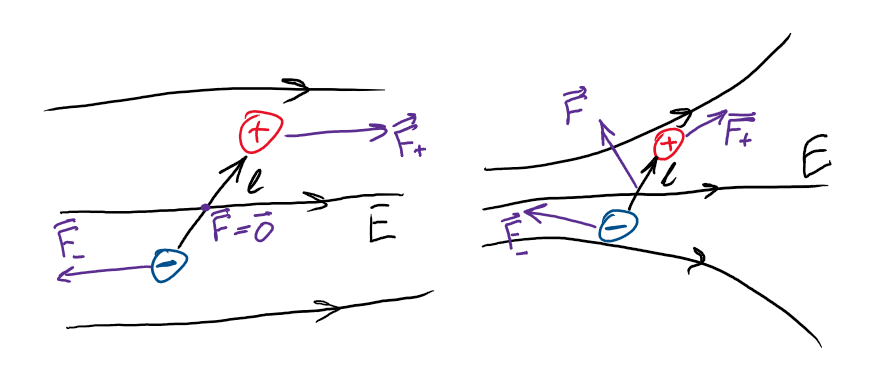 +
F₊
l
F = 0
E
F₋
−
F
+
F₊
E
l
F₋
−